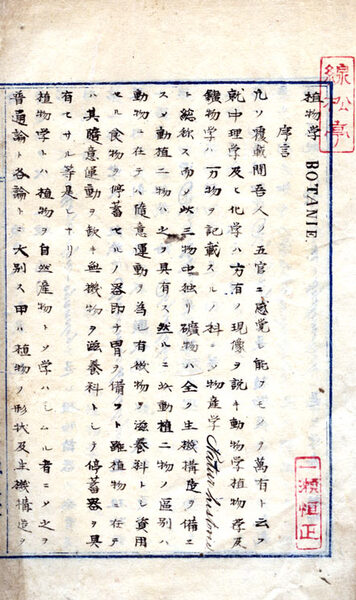 植物学 BOTANIE.
序言
凡ソ覆載間吾人ノ五官ニ感覚シ能フモノヲ萬有ト云フ
就中理学及ヒ化学ハ万有ノ現像ヲ説キ動物学植物学及
鑛物学ハ万物ヲ記載スルノ科ニシテ物産学 Natur
ト総称ス而シテ此三物中独リ礦物ハ全ク生機構造ヲ備ヱ
スシテ動植二物ハ之ヲ具有ス然ルニ此動植二物ノ區別ハ
動物ニ在テハ随意運動ヲ為シ有機物ヲ滋養料トシ資用
セル食物ヲ停蓄セルノ器即チ胃ヲ備フト雖植物ニ在テ
ハ其隨意運動ヲ缺キ無機物ヲ滋養料トシテ停蓄器ヲ具
有セサル等是レナリ
植物学トハ植物ヲ自然産物トシ学ハシムル者ニシテ之ヲ
普通論ト各論トニ大別ス甲ハ植物ノ形状及生機構造ヲ
一瀬恒正